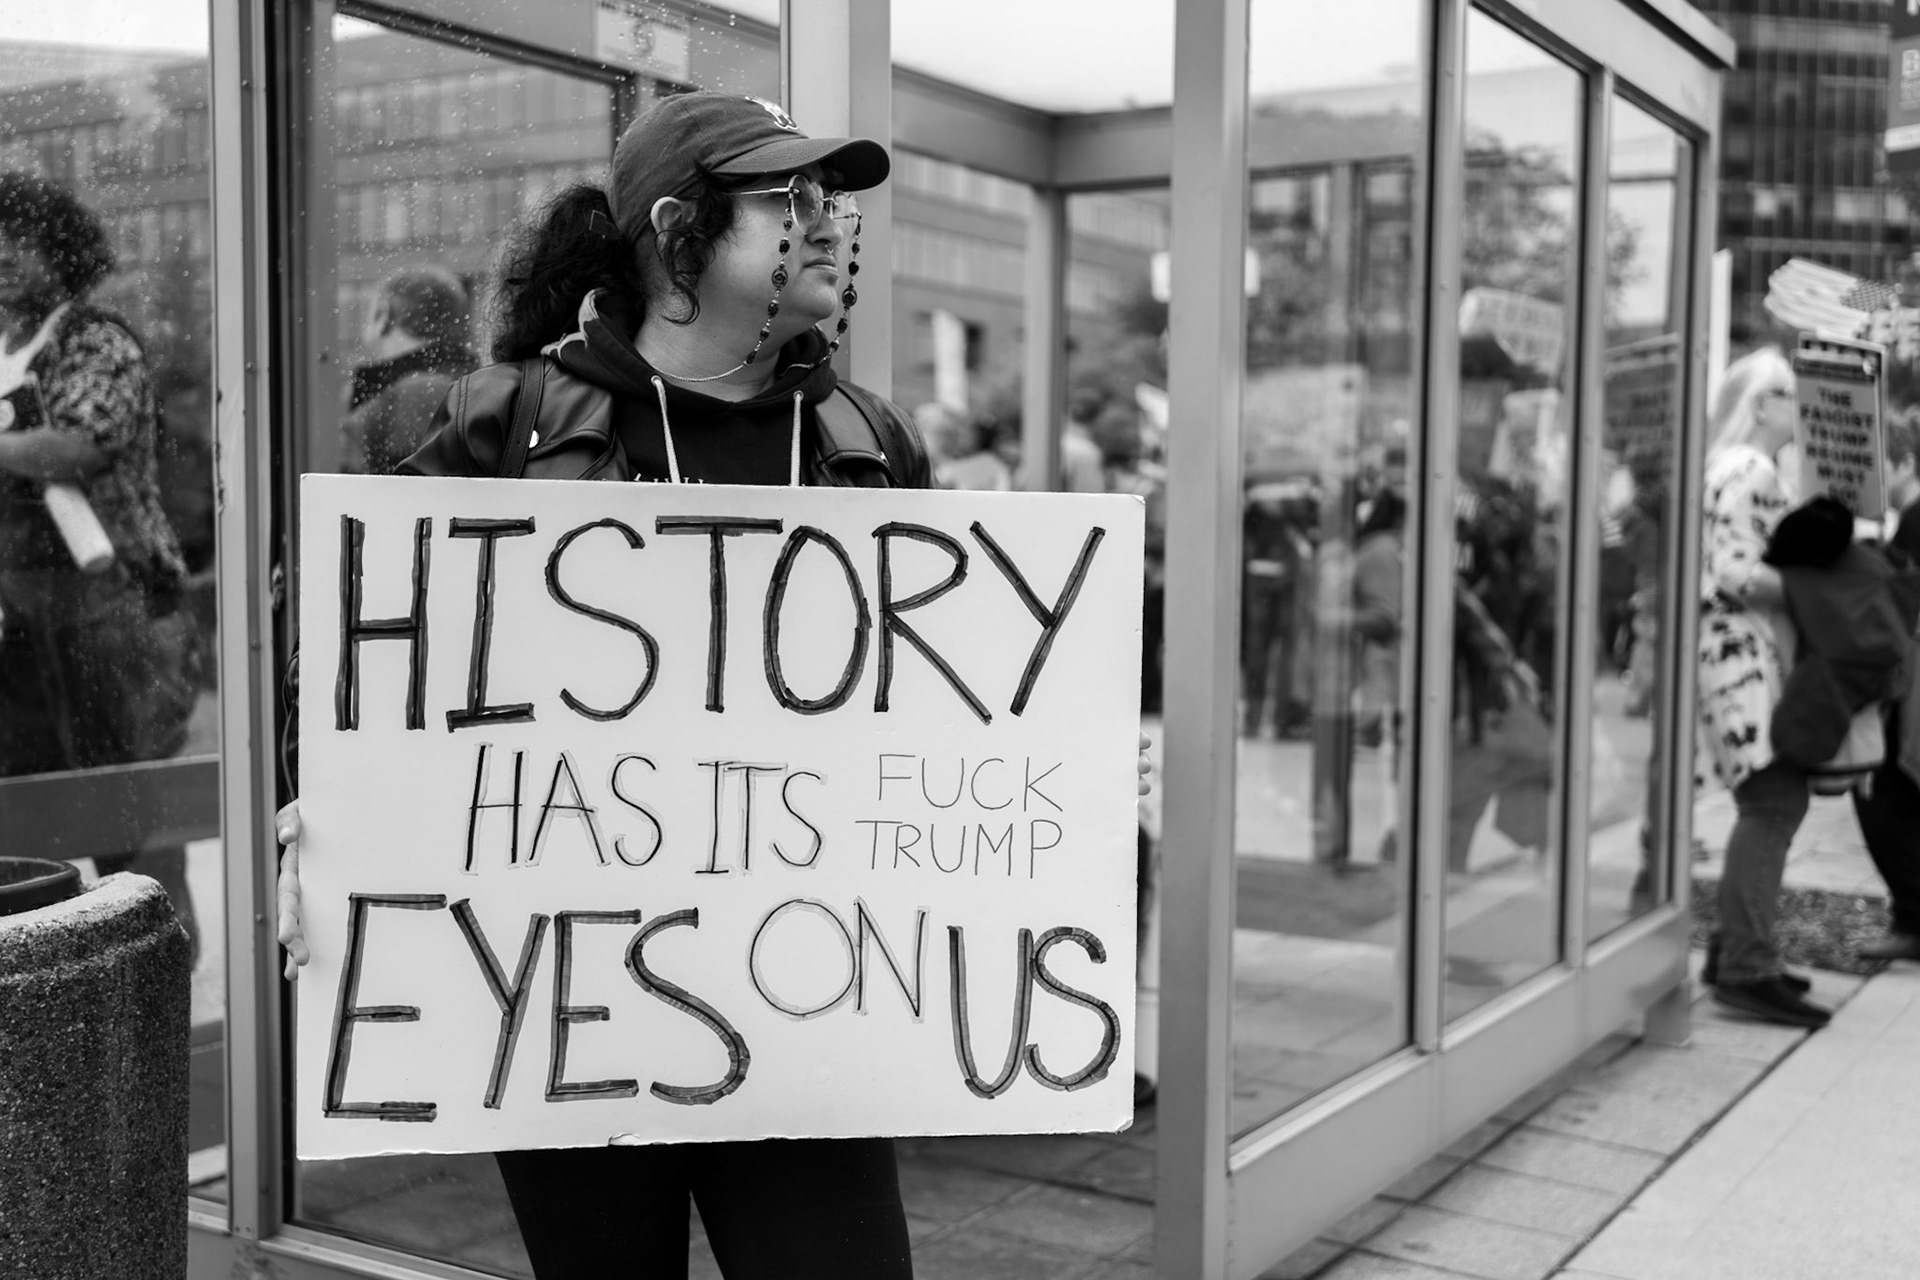 HISTORY
HAS ITS
FUCK
TRUMP
EYES ON US
THE
FASCIST
TRUMP
REGIME
MUST
GO!